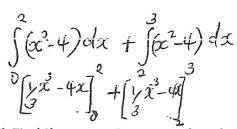 ∫₀² (x³-4) dx + ∫₂³ (x²-4) dx
[⅓ x³ -4x]₀² + [⅓ x³ -4x]₂³